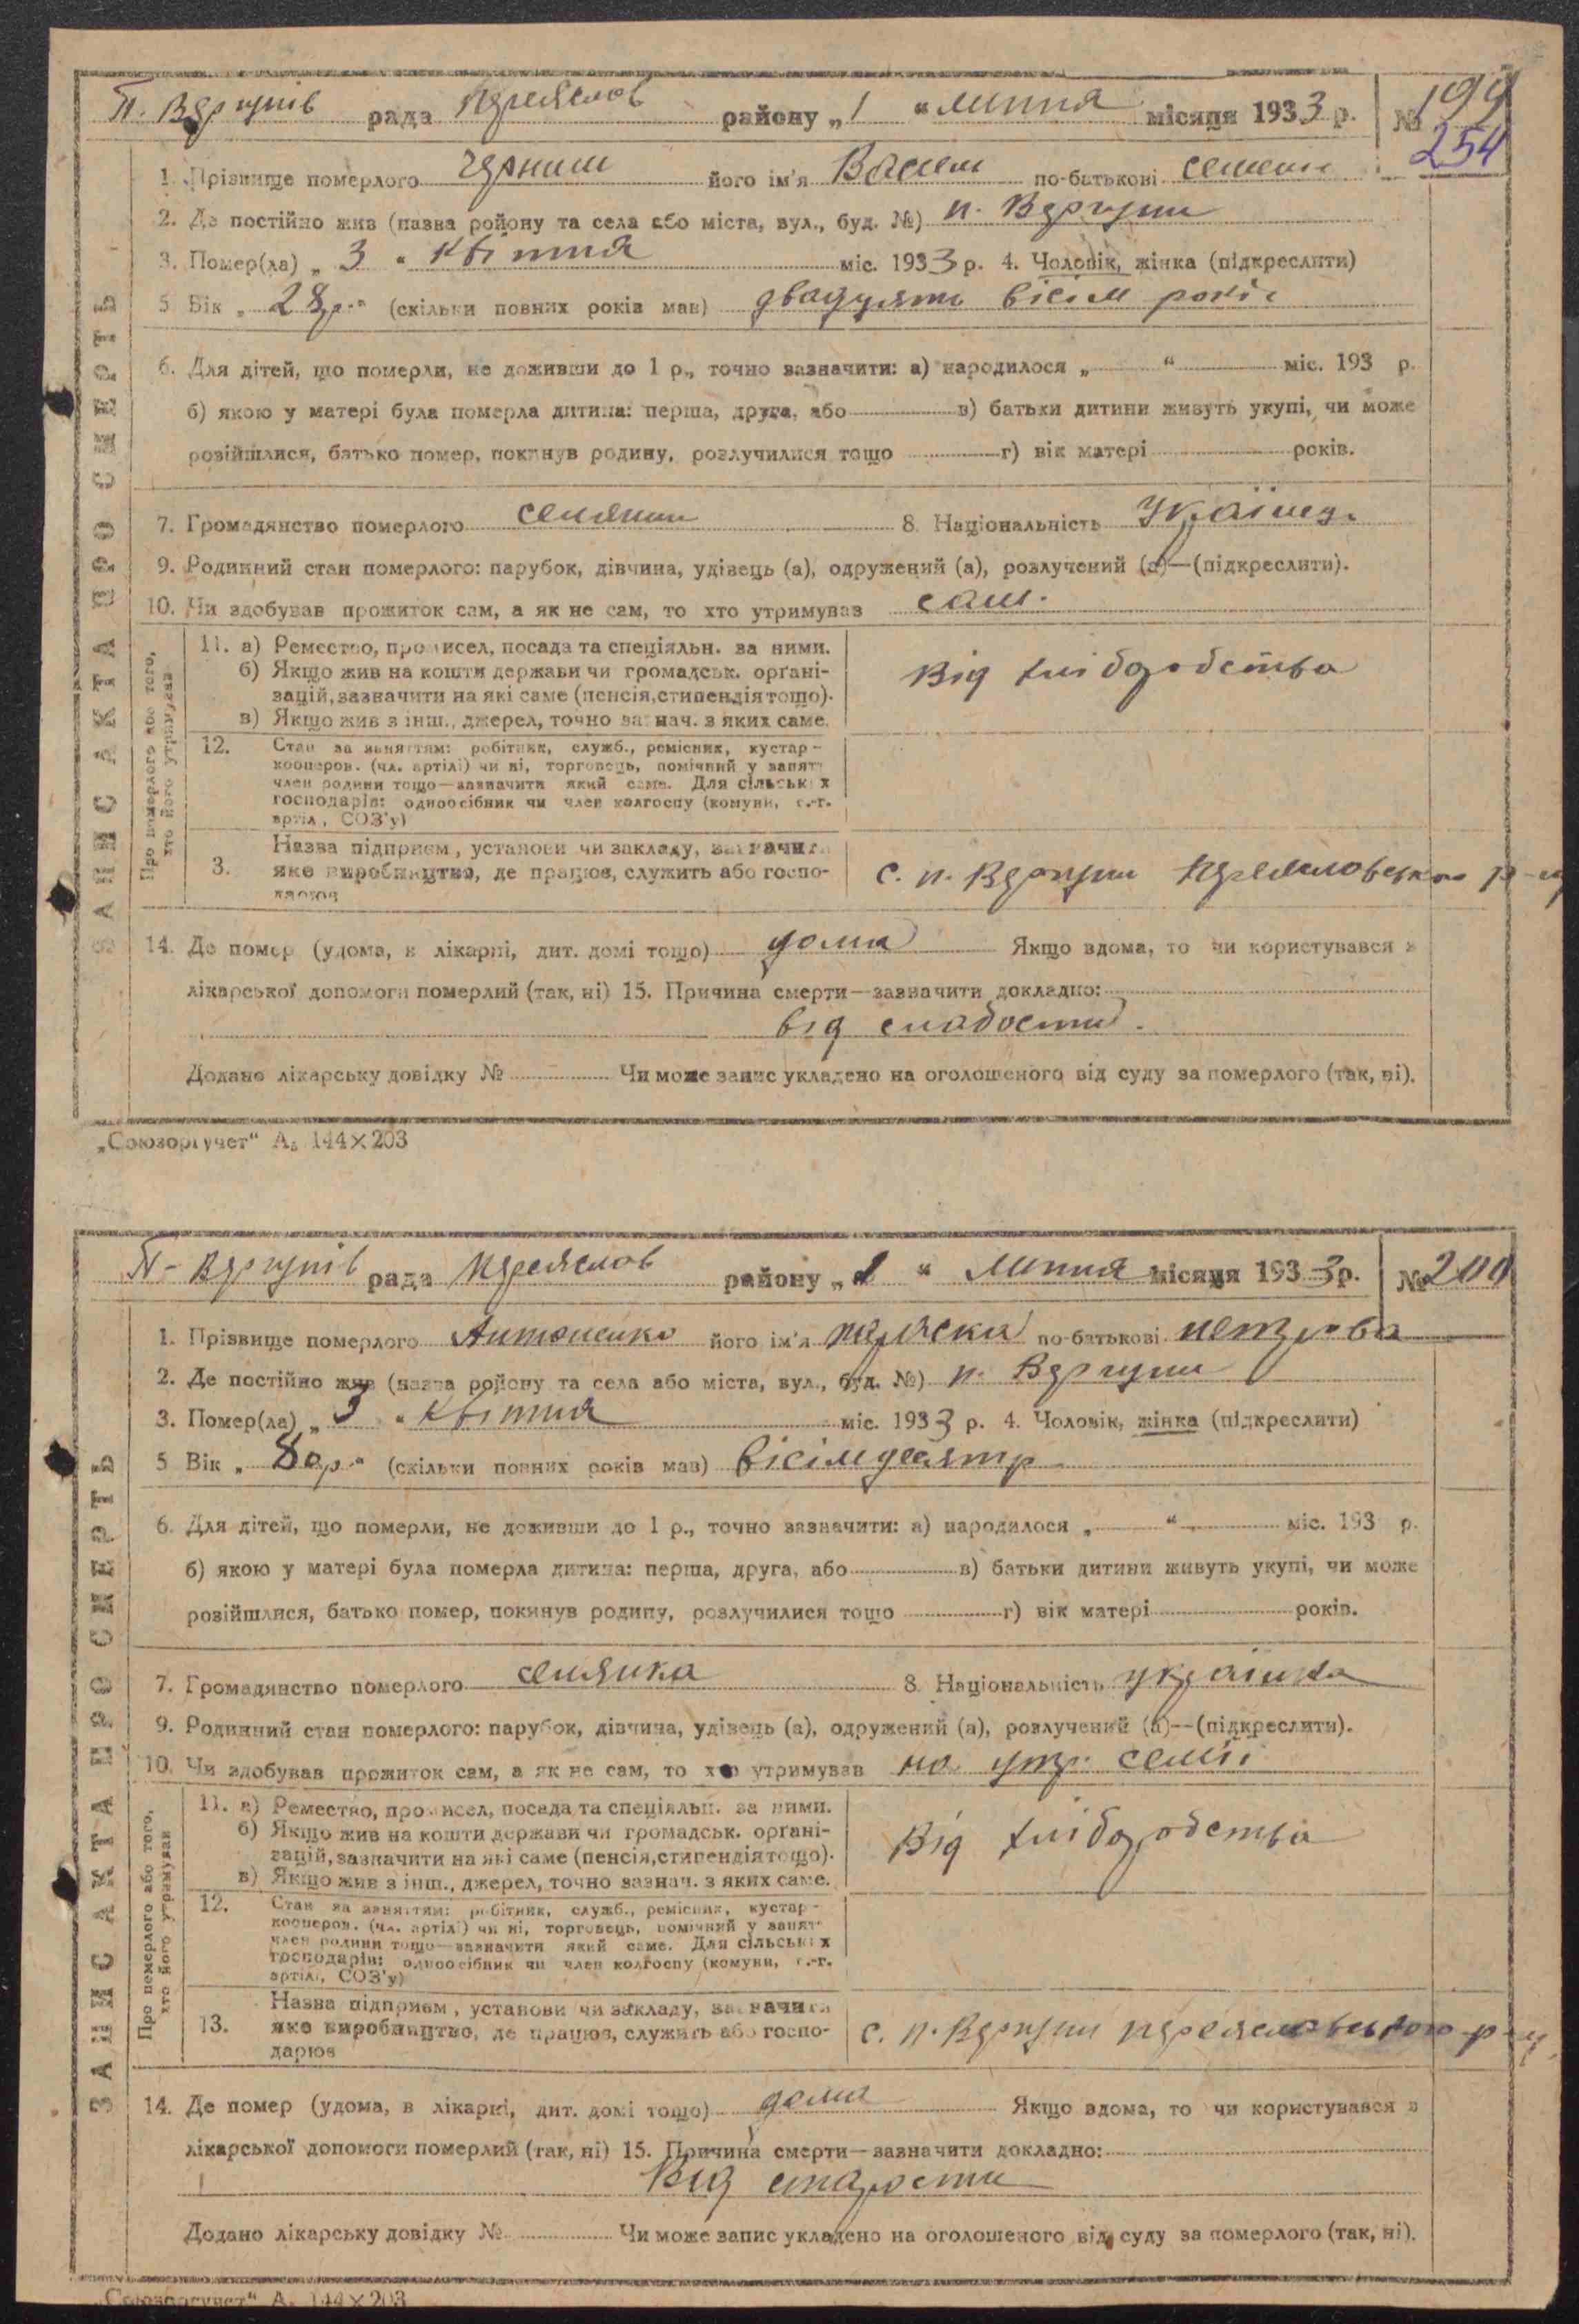 П. Вергунів рада Переяслов району „1 “ липня місяця 1933 р. № 199
254
1. Прізвище померлого Черниш його ім'я Васил по-батькові семен
2. Де постійно жив (назва ройону та села або міста, вул., буд. №) п. Вергуни
3. Помер(ла) „ 3 “ квітня міс. 1933 р. 4. Чоловік, жінка (підкреслити)
5 Вік „ 28р. “ (скільки повних років мав) двадцять вісім років
6. Для дітей, що померли, не доживши до 1 р., точно зазначити: а) народилося „ “ міс. 193 р.
б) якою у матері була померла дитина: перша, друга, або в) батьки дитини живуть укупі, чи може
розійшлися, батько помер, покинув родину, розлучилися тощо г) вік матері років.
7. Громадянство померлого селянин 8. Національність Україець
9. Родинний стан померлого: парубок, дівчина, удівець (а), одружений (а), розлучений (а)—(підкреслити).
10. Чи здобував прожиток сам, а як не сам, то хто утримував сам.
ЗАПИС АКТА ПРО СМЕРТЬ
Про померлого або того,
хто його утримував
11. а) Ремество, промисел, посада та спеціяльн. за ними.
б) Якщо жив на кошти держави чи громадськ. орґані-
зацій, зазначити на які саме (пенсія, стипендія тощо).
в) Якщо жив з інш., джерел, точно зазнач. з яких саме.
Від хліборобства
12. Стан за заняттям: робітник, служб., ремісник, кустар-
кооперов. (чл. артілі) чи ні, торговець, помічний у занят
член родини тощо—зазначити який саме. Для сільських
господарів: одноосібник чи член колгоспу (комуни, с.-г.
артіл, СОЗ'у)
3. Назва підприєм, установи чи закладу, зазначити
яке виробництво, де працює, служить або госпо-
дарює
с. п. Вергуни Переясловського р-ну
14. Де помер (удома, в лікарні, дит. домі тощо) дома Якщо вдома, то чи користувався з
лікарської допомоги померлий (так, ні) 15. Причина смерти—зазначити докладно:
від слабости.
Додано лікарську довідку № Чи може запис укладено на оголошеного від суду за померлого (так, ні).
„Союзоргучет“ А₅ 144×203
П- Вергунів рада Переяслов району „1 “ липня місяця 1933р. № 200
1. Прізвище померлого Антоненко його ім'я параска по-батькові петрова
2. Де постійно жив (назва ройону та села або міста, вул., буд. №) п. Вергуни
3. Помер(ла) „ 3 “ квітня міс. 1933 р. 4. Чоловік, жінка (підкреслити)
5 Вік „ 80р. “ (скільки повних років мав) вісімдесятр
6. Для дітей, що померли, не доживши до 1 р., точно зазначити: а) народилося „ “ міс. 193 р.
б) якою у матері була померла дитина: перша, друга, або в) батьки дитини живуть укупі, чи може
розійшлися, батько помер, покинув родину, розлучилися тощо г) вік матері років.
7. Громадянство померлого селянка 8. Національність українка
9. Родинний стан померлого: парубок, дівчина, удівець (а), одружений (а), розлучений (а)—(підкреслити).
10. Чи здобував прожиток сам, а як не сам, то хто утримував на утр. семії
ЗАПИС АКТА ПРО СМЕРТЬ
Про померлого або того,
хто його утримував
11. а) Ремество, промисел, посада та спеціяльн. за ними.
б) Якщо жив на кошти держави чи громадськ. орґані-
зацій, зазначити на які саме (пенсія, стипендія тощо).
в) Якщо жив з інш., джерел, точно зазнач. з яких саме.
Від хліборобства
12. Стан за заняттям: робітник, служб., ремісник, кустар-
кооперов. (чл. артілі) чи ні, торговець, помічний у занят
член родини тощо—зазначити який саме. Для сільських
господарів: одноосібник чи член колгоспу (комуни, с.-г.
артіл, СОЗ'у)
13. Назва підприєм, установи чи закладу, зазначити
яке виробництво, де працює, служить або госпо-
дарює
с. п. Вергуни переясловського р-ну,
14. Де помер (удома, в лікарні, дит. домі тощо) дома Якщо вдома, то чи користувався з
лікарської допомоги померлий (так, ні) 15. Причина смерти—зазначити докладно:
Від старости
Додано лікарську довідку № Чи може запис укладено на оголошеного від суду за померлого (так, ні).
„Союзоргучет“ А₅ 144×203